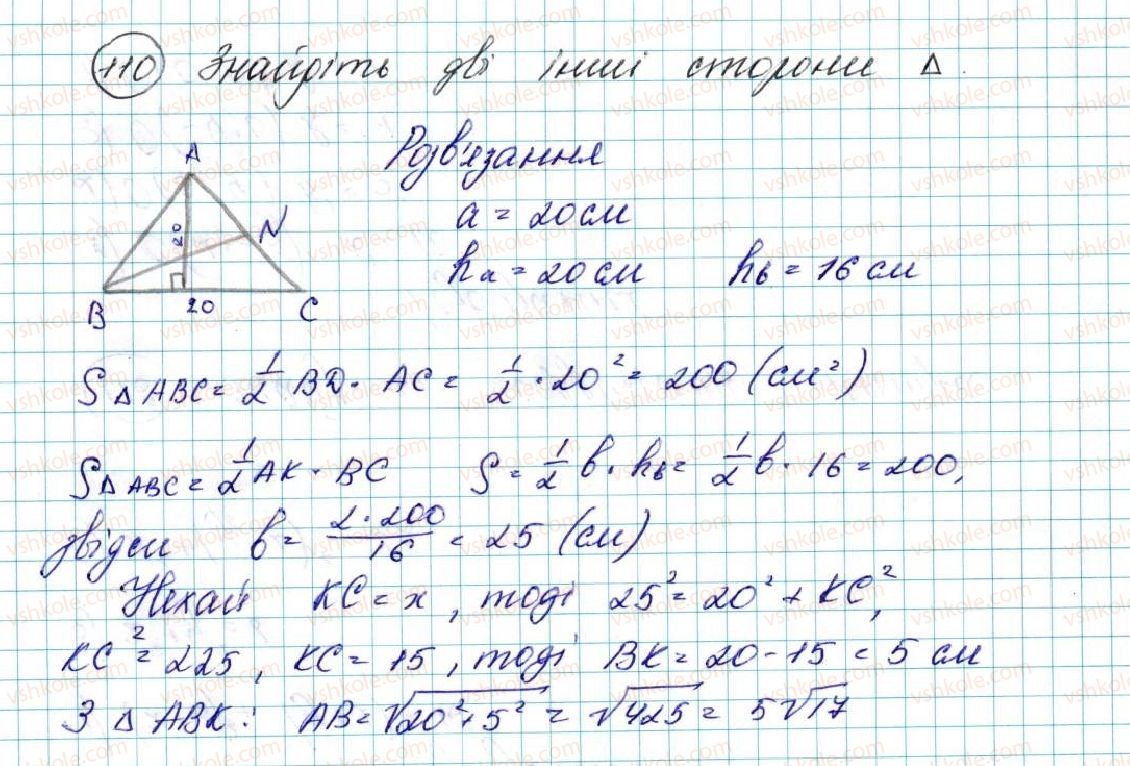 110 Знайдіть дві інші сторони Δ.
Розв'язання
A
N
20
B
20
C
a = 20 см
hₐ = 20 см h_b = 16 см
S Δ ABC = 1/2 BD · AC = 1/2 · 20² = 200 (см²)
S Δ ABC = 1/2 AK · BC S = 1/2 b · h_b = 1/2 b · 16 = 200,
звідси b = 2·200/16 = 25 (см)
Нехай KC = x, тоді 25² = 20² + KC²,
KC² = 225, KC = 15, тоді BK = 20 - 15 = 5 см
З Δ ABK: AB = √20²+5² = √425 = 5√17
vshkole.com